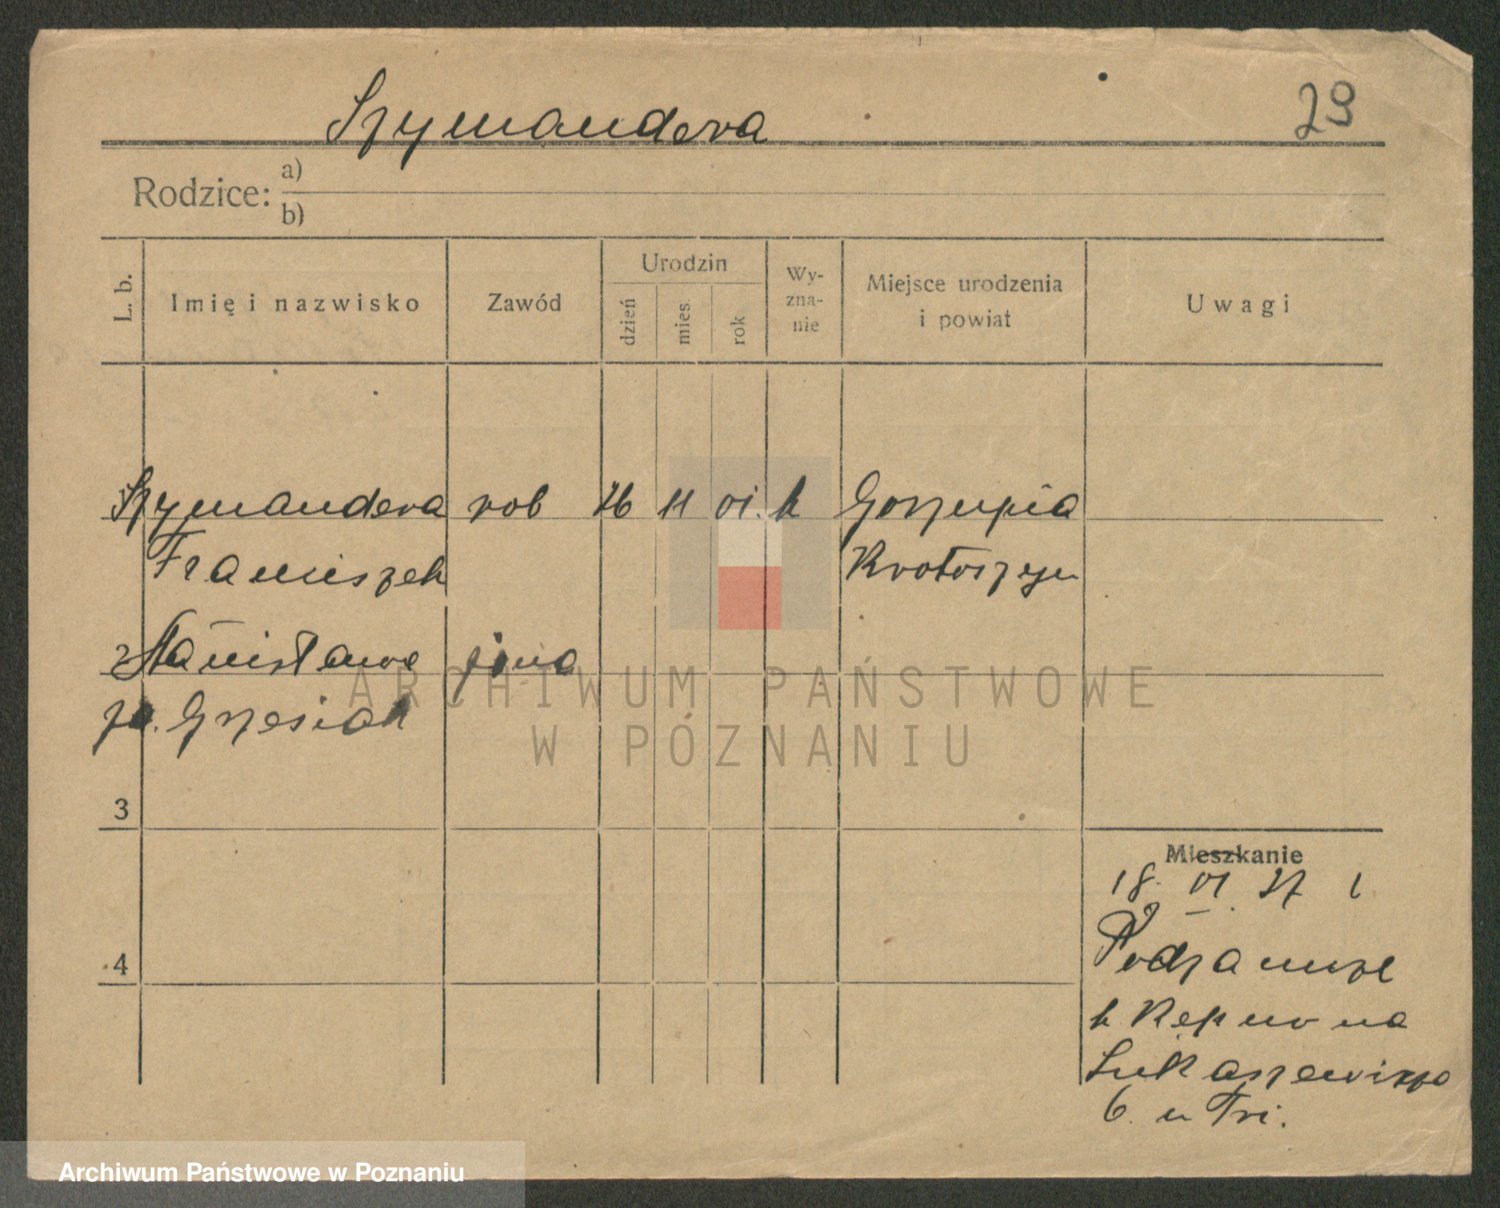 Szymandera
29
Rodzice: a)
b)
L. b.
Imię i nazwisko
Zawód
Urodzin
dzień
mies.
rok
Wy-
zna-
nie
Miejsce urodzenia
i powiat
Uwagi
Szymandera rob 11 01. k Gorzupia
Franciszek Krotoszyn
2 Stanisława żona
Grzesiak
3
4
Mieszkanie
18. VI. 37
Podzamcze
k Kępno na
Łukaszewicza
6.
ARCHIWUM PAŃSTWOWE
W POZNANIU
Archiwum Państwowe w Poznaniu